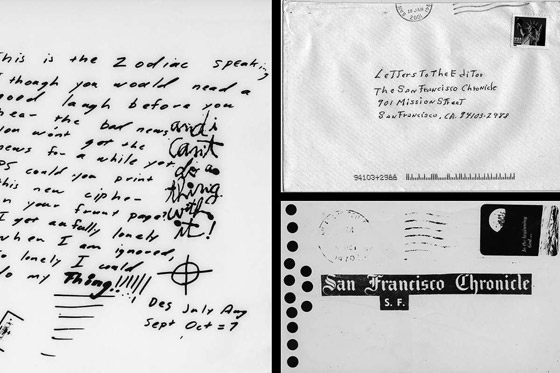 This is the Zodiac speaking
I though you would need a
good laugh before you
hear the bad news
you won't get the
news for a while yet
PS could you print
this new cipher
on your frunt page?
I get awfully lonely
when I am ignored,
so lonely I could
do my Thing!!!!!!
and i
can't
do a
thing
with
it!
Des July Aug
Sept Oct = 7
2001
LeTTers To The EdiTor
The San Francisco Chronicle
901 Mission STreeT
San Francisco, CA. 94103-2988
94103+2988
In the beginning
God...
San Francisco Chronicle
S. F.